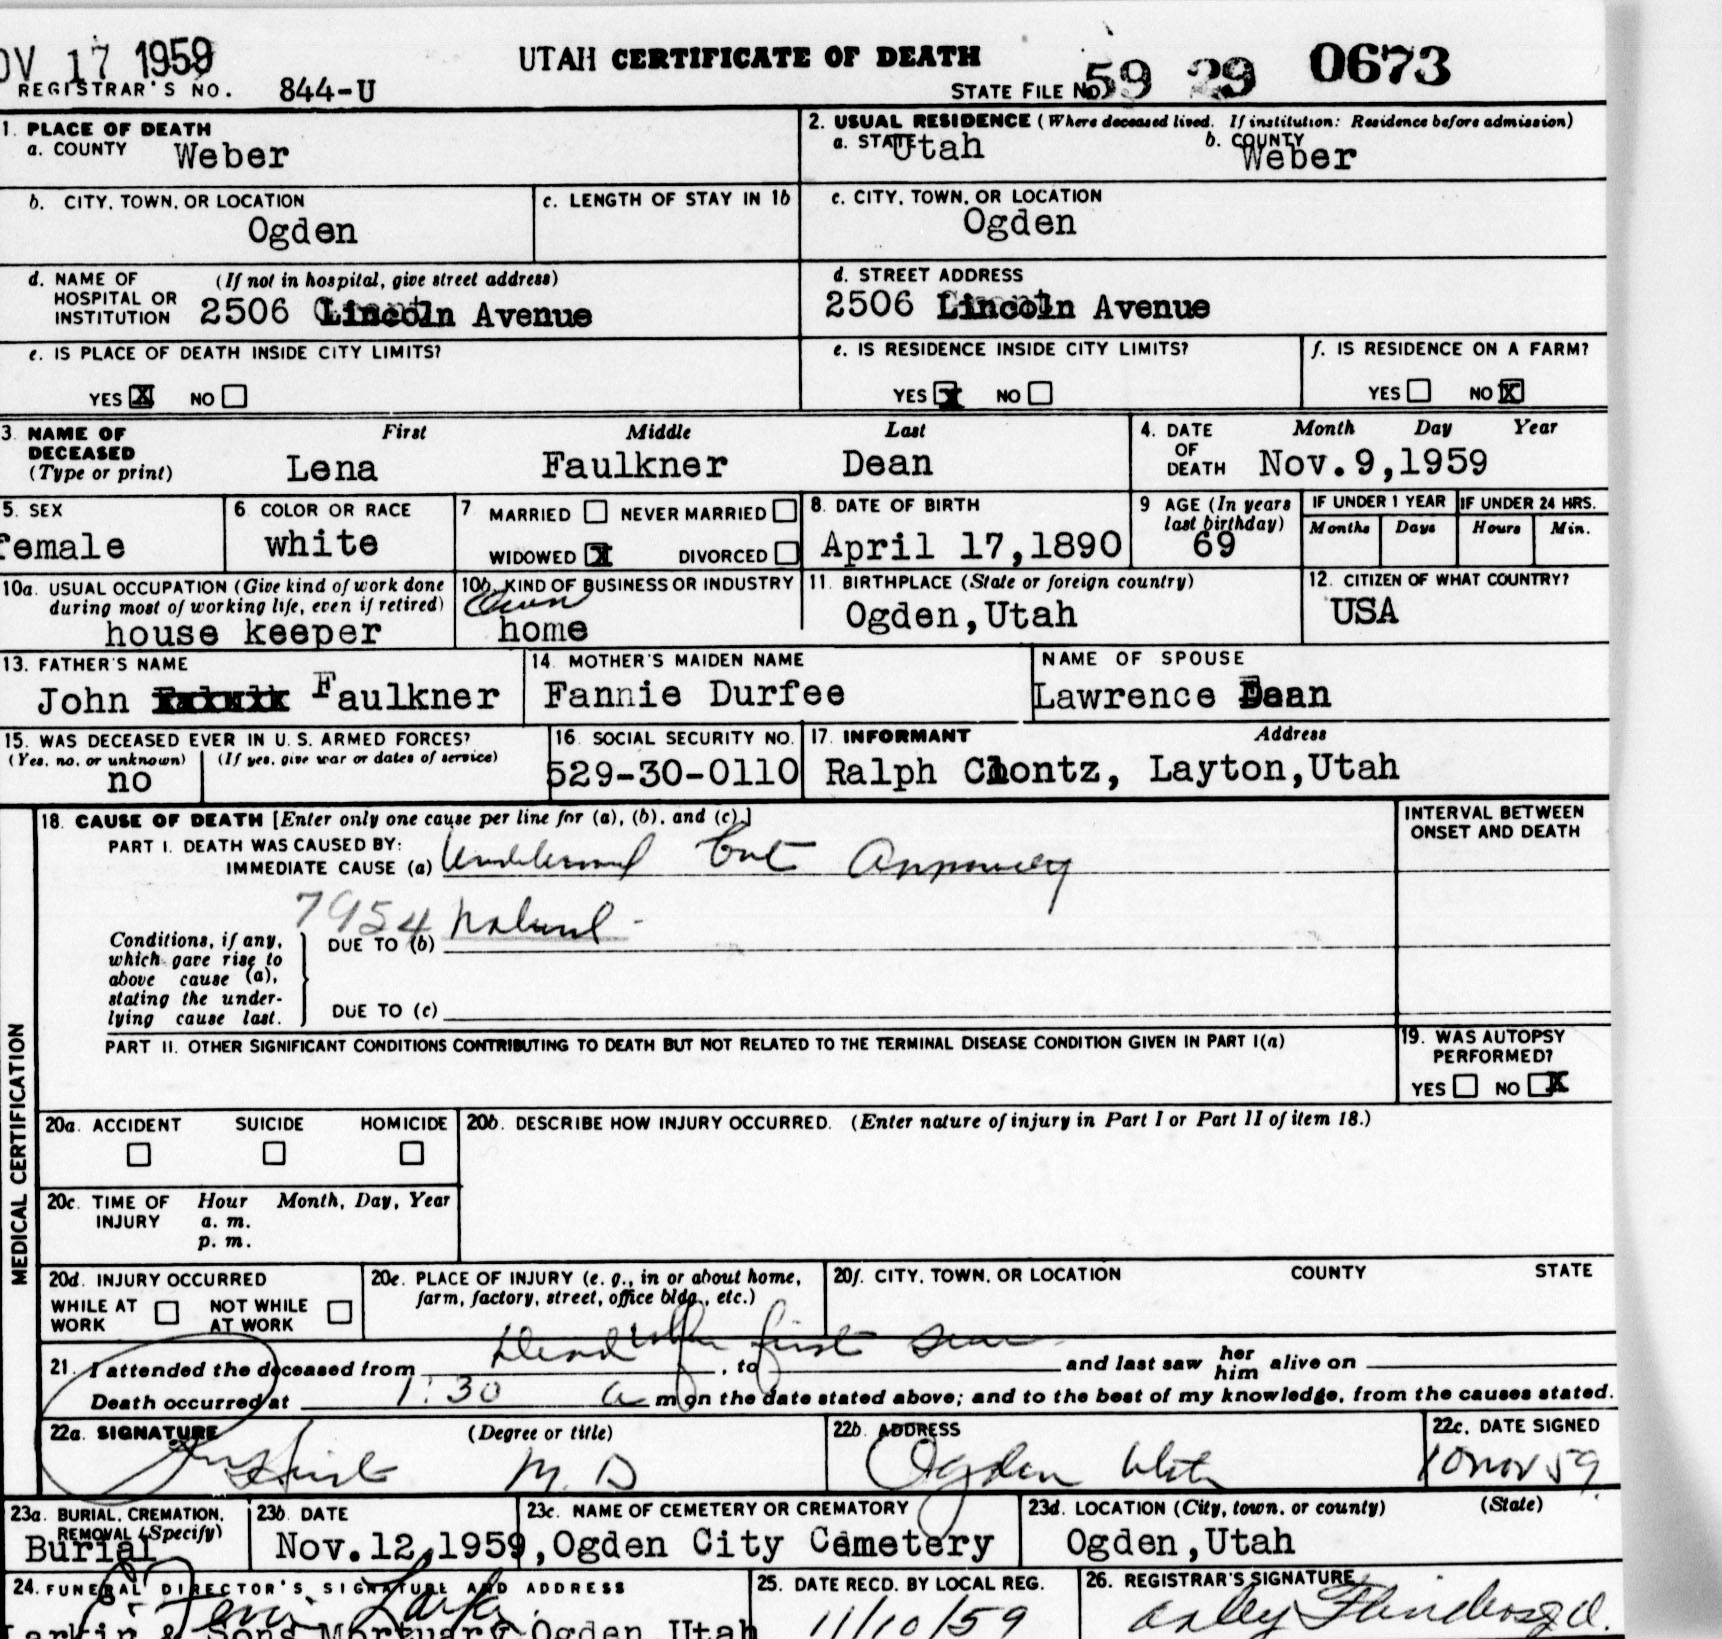 OV 17 1959
UTAH CERTIFICATE OF DEATH
REGISTRAR'S NO. 844-U
STATE FILE NO. 59 29 0673
1. PLACE OF DEATH
a. COUNTY Weber
2. USUAL RESIDENCE (Where deceased lived. If institution: Residence before admission)
a. STATE Utah b. COUNTY Weber
b. CITY, TOWN, OR LOCATION
Ogden
c. LENGTH OF STAY IN 1b
c. CITY, TOWN, OR LOCATION
Ogden
d. NAME OF HOSPITAL OR INSTITUTION (If not in hospital, give street address)
2506 Lincoln Avenue
d. STREET ADDRESS
2506 Lincoln Avenue
e. IS PLACE OF DEATH INSIDE CITY LIMITS?
YES X NO
e. IS RESIDENCE INSIDE CITY LIMITS?
YES X NO
f. IS RESIDENCE ON A FARM?
YES NO X
3. NAME OF DECEASED (Type or print)
First Middle Last
Lena Faulkner Dean
4. DATE OF DEATH Month Day Year
Nov.9,1959
5. SEX
female
6. COLOR OR RACE
white
7. MARRIED NEVER MARRIED
WIDOWED X DIVORCED
8. DATE OF BIRTH
April 17,1890
9 AGE (In years last birthday)
69
IF UNDER 1 YEAR
Months Days
IF UNDER 24 HRS.
Hours Min.
10a. USUAL OCCUPATION (Give kind of work done during most of working life, even if retired)
house keeper
10b. KIND OF BUSINESS OR INDUSTRY
Own home
11. BIRTHPLACE (State or foreign country)
Ogden,Utah
12. CITIZEN OF WHAT COUNTRY?
USA
13. FATHER'S NAME
John Faulkner
14. MOTHER'S MAIDEN NAME
Fannie Durfee
NAME OF SPOUSE
Lawrence Dean
15. WAS DECEASED EVER IN U. S. ARMED FORCES?
(Yes, no, or unknown) (If yes, give war or dates of service)
no
16. SOCIAL SECURITY NO.
529-30-0110
17. INFORMANT Address
Ralph Clontz, Layton,Utah
MEDICAL CERTIFICATION
18. CAUSE OF DEATH [Enter only one cause per line for (a), (b), and (c).]
PART I. DEATH WAS CAUSED BY:
IMMEDIATE CAUSE (a) but
INTERVAL BETWEEN ONSET AND DEATH
7954 natural
Conditions, if any, which gave rise to above cause (a), stating the underlying cause last.
DUE TO (b)
DUE TO (c)
PART II. OTHER SIGNIFICANT CONDITIONS CONTRIBUTING TO DEATH BUT NOT RELATED TO THE TERMINAL DISEASE CONDITION GIVEN IN PART I(a)
19. WAS AUTOPSY PERFORMED?
YES NO X
20a. ACCIDENT SUICIDE HOMICIDE
20b. DESCRIBE HOW INJURY OCCURRED. (Enter nature of injury in Part I or Part II of item 18.)
20c. TIME OF INJURY Hour Month, Day, Year
a. m.
p. m.
20d. INJURY OCCURRED
WHILE AT WORK NOT WHILE AT WORK
20e. PLACE OF INJURY (e. g., in or about home, farm, factory, street, office bldg., etc.)
20f. CITY, TOWN, OR LOCATION COUNTY STATE
Dead when first seen
21. I attended the deceased from , to and last saw her him alive on
Death occurred at 1:30 a m on the date stated above; and to the best of my knowledge, from the causes stated.
22a. SIGNATURE (Degree or title)
M.D
22b. ADDRESS
Ogden Utah
22c. DATE SIGNED
10 Nov 59
23a. BURIAL, CREMATION, REMOVAL (Specify)
Burial
23b. DATE
Nov.12,1959,
23c. NAME OF CEMETERY OR CREMATORY
Ogden City Cemetery
23d. LOCATION (City, town, or county) (State)
Ogden,Utah
24. FUNERAL DIRECTOR'S SIGNATURE AND ADDRESS
Larkin & Sons Mortuary Ogden Utah
25. DATE RECD. BY LOCAL REG.
11/10/59
26. REGISTRAR'S SIGNATURE